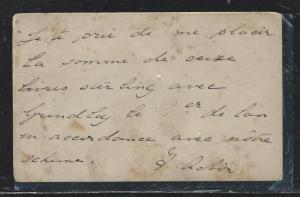 prié de me placer
la somme de seize
livres sterling avec
Grundlay le 1er de l'an
in accordance avec nôtre
scheme.